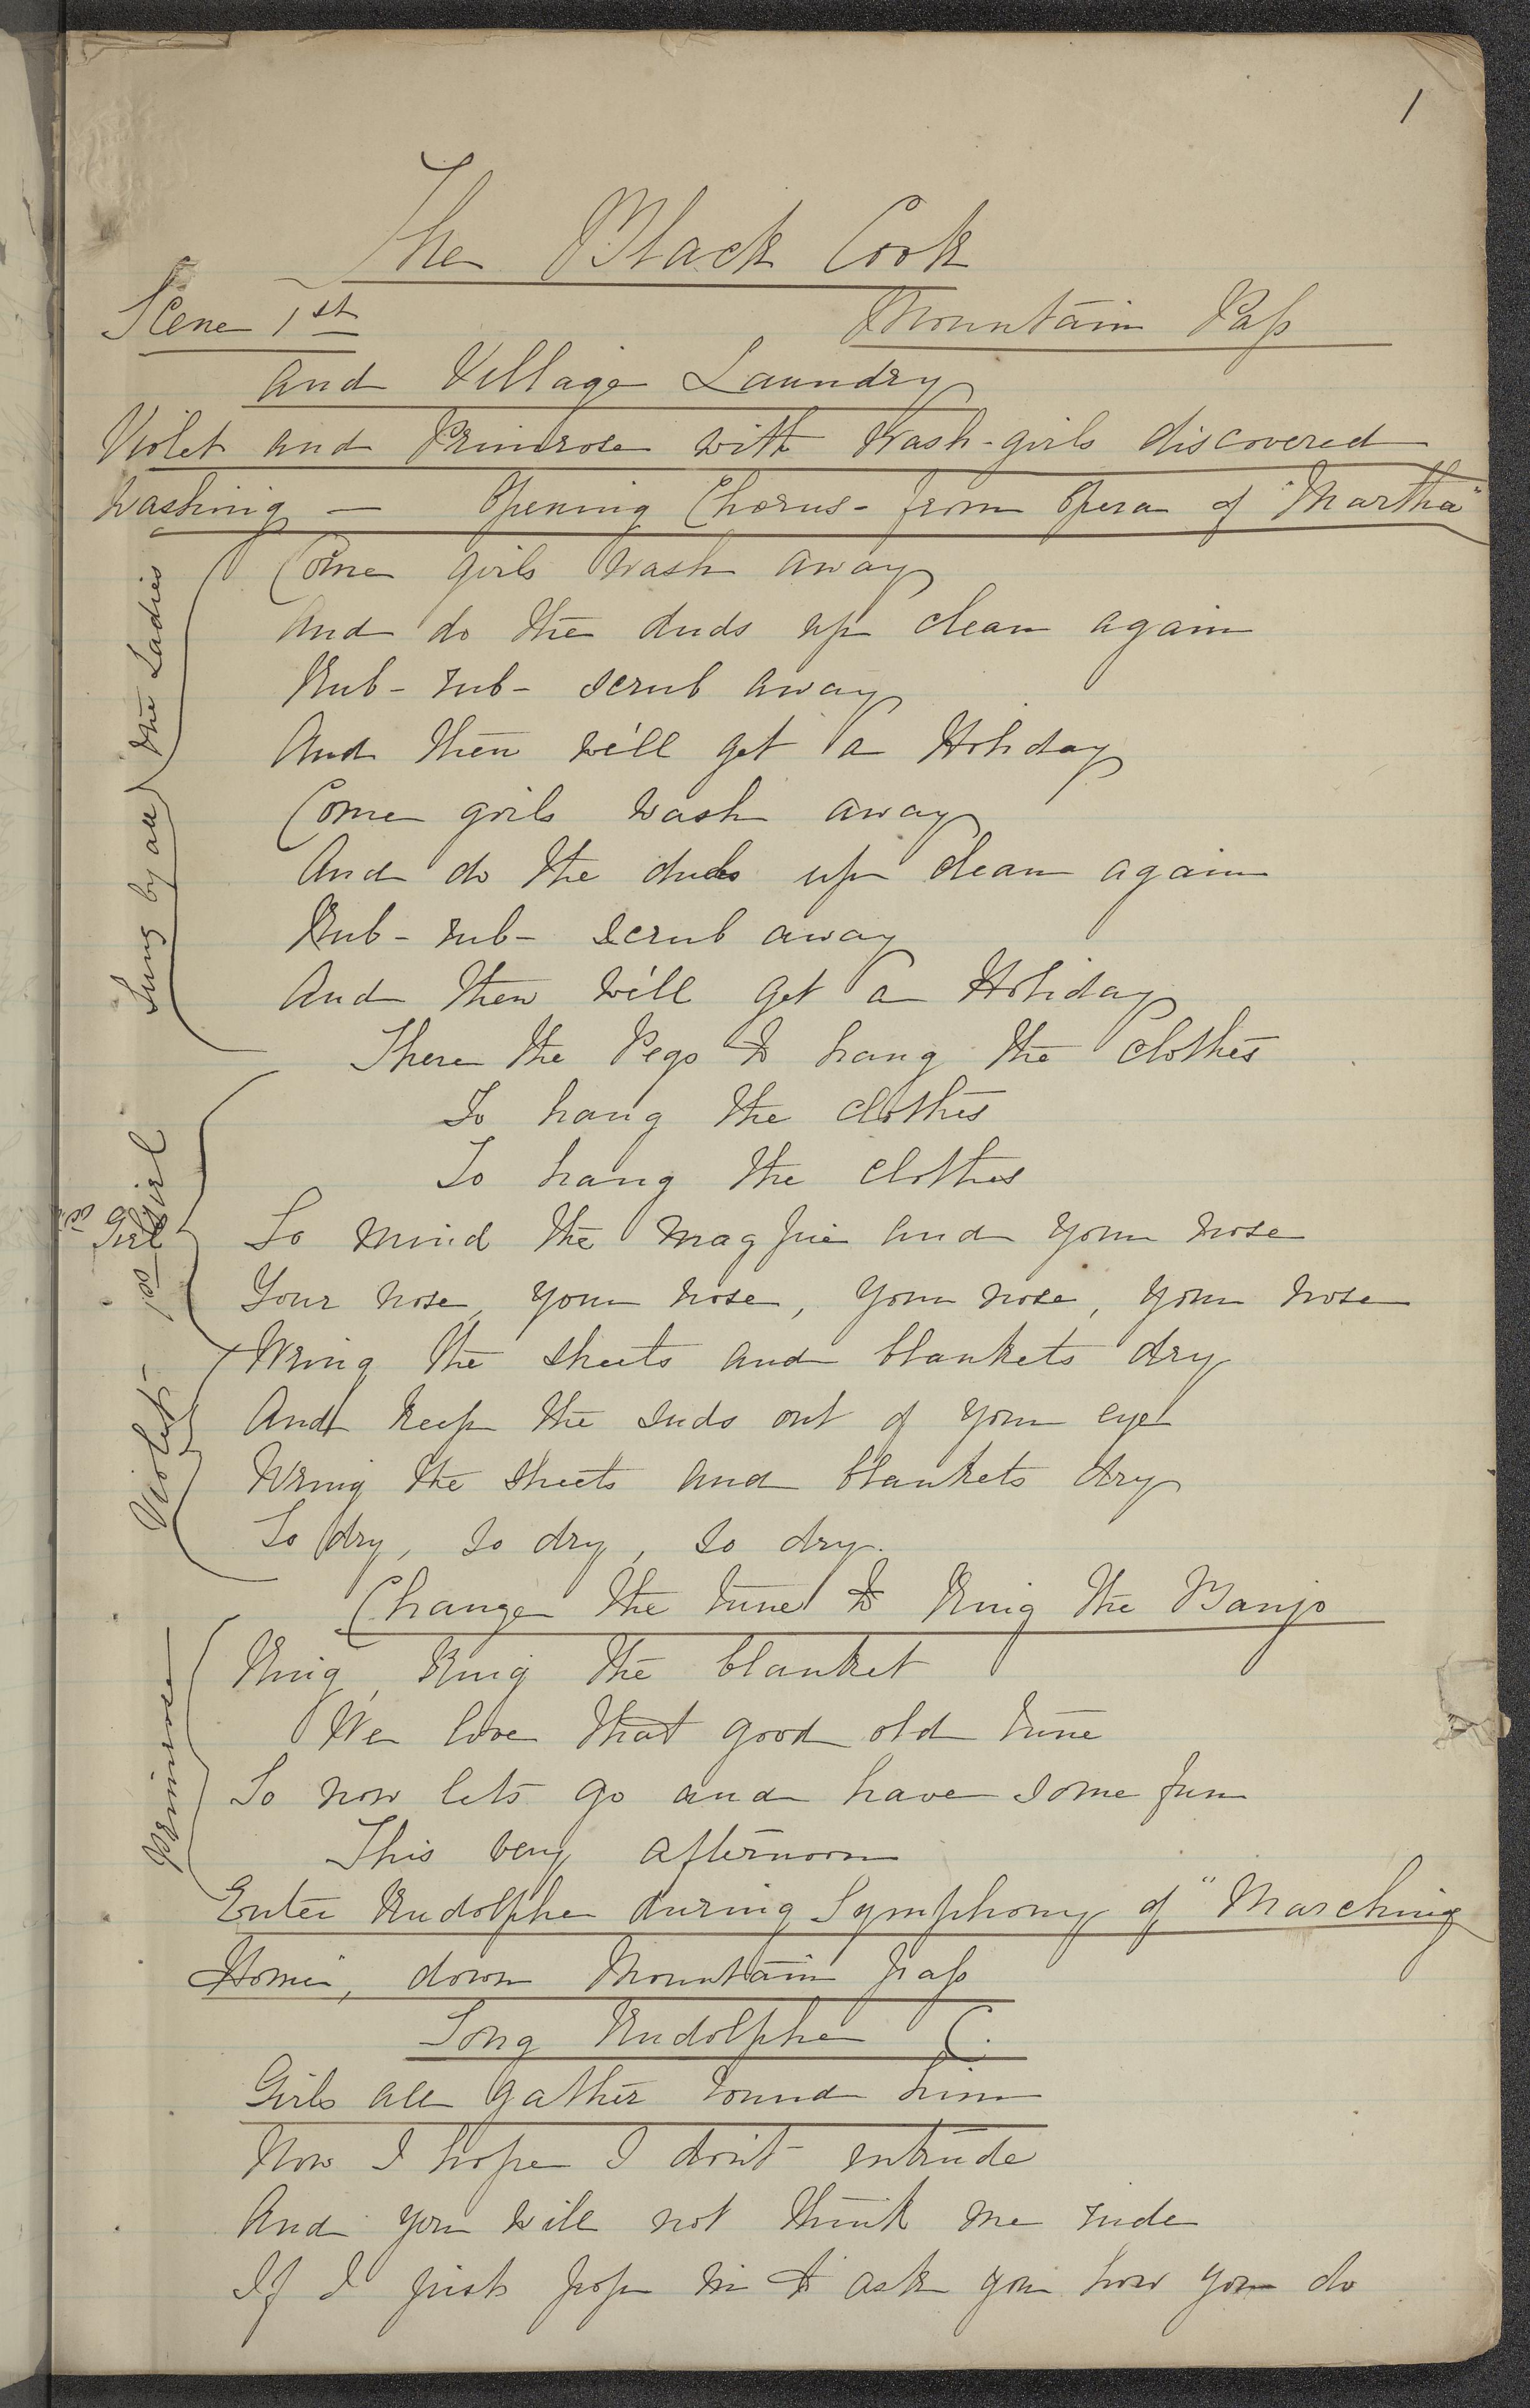 1
The Black Cook
Scene 1st Mountain Pass
and Village Laundry
Violet and Primrose with Wash-girls discovered
washing — Opening Chorus - from Opera of "Martha"
Sung by all the Ladies
Come girls wash away
And do the duds up clean again
Rub - rub - scrub away
And then we'll get a Holiday
Come girls wash away
And do the duds up clean again
Rub - rub - scrub away
And then we'll get a Holiday
There the Pegs to hang the clothes
To hang the clothes
To hang the clothes
1st Girl
1st Girl
So mind the magpie and your nose
Your nose, your nose, your nose, your nose
Violet -
Wring the sheets and blankets dry
And keep the suds out of your eye
Wring the sheets and blankets dry
So dry, so dry, so dry.
Change the tune to Ring the Banjo
Primrose
Ring, Ring the blanket
We love that good old tune
So now lets go and have some fun
This very afternoon
Enter Rudolphe during Symphony of "Marching
Home", down Mountain pass
Song Rudolphe C.
Girls all gather round him
Now I hope I don't intrude
And you will not think me rude
If I just pop in to ask you how you do